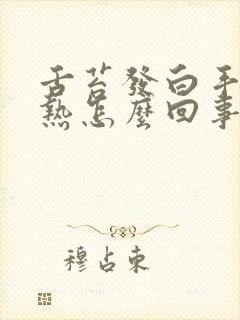 舌苔發白手
熱怎麼回事
穆占東